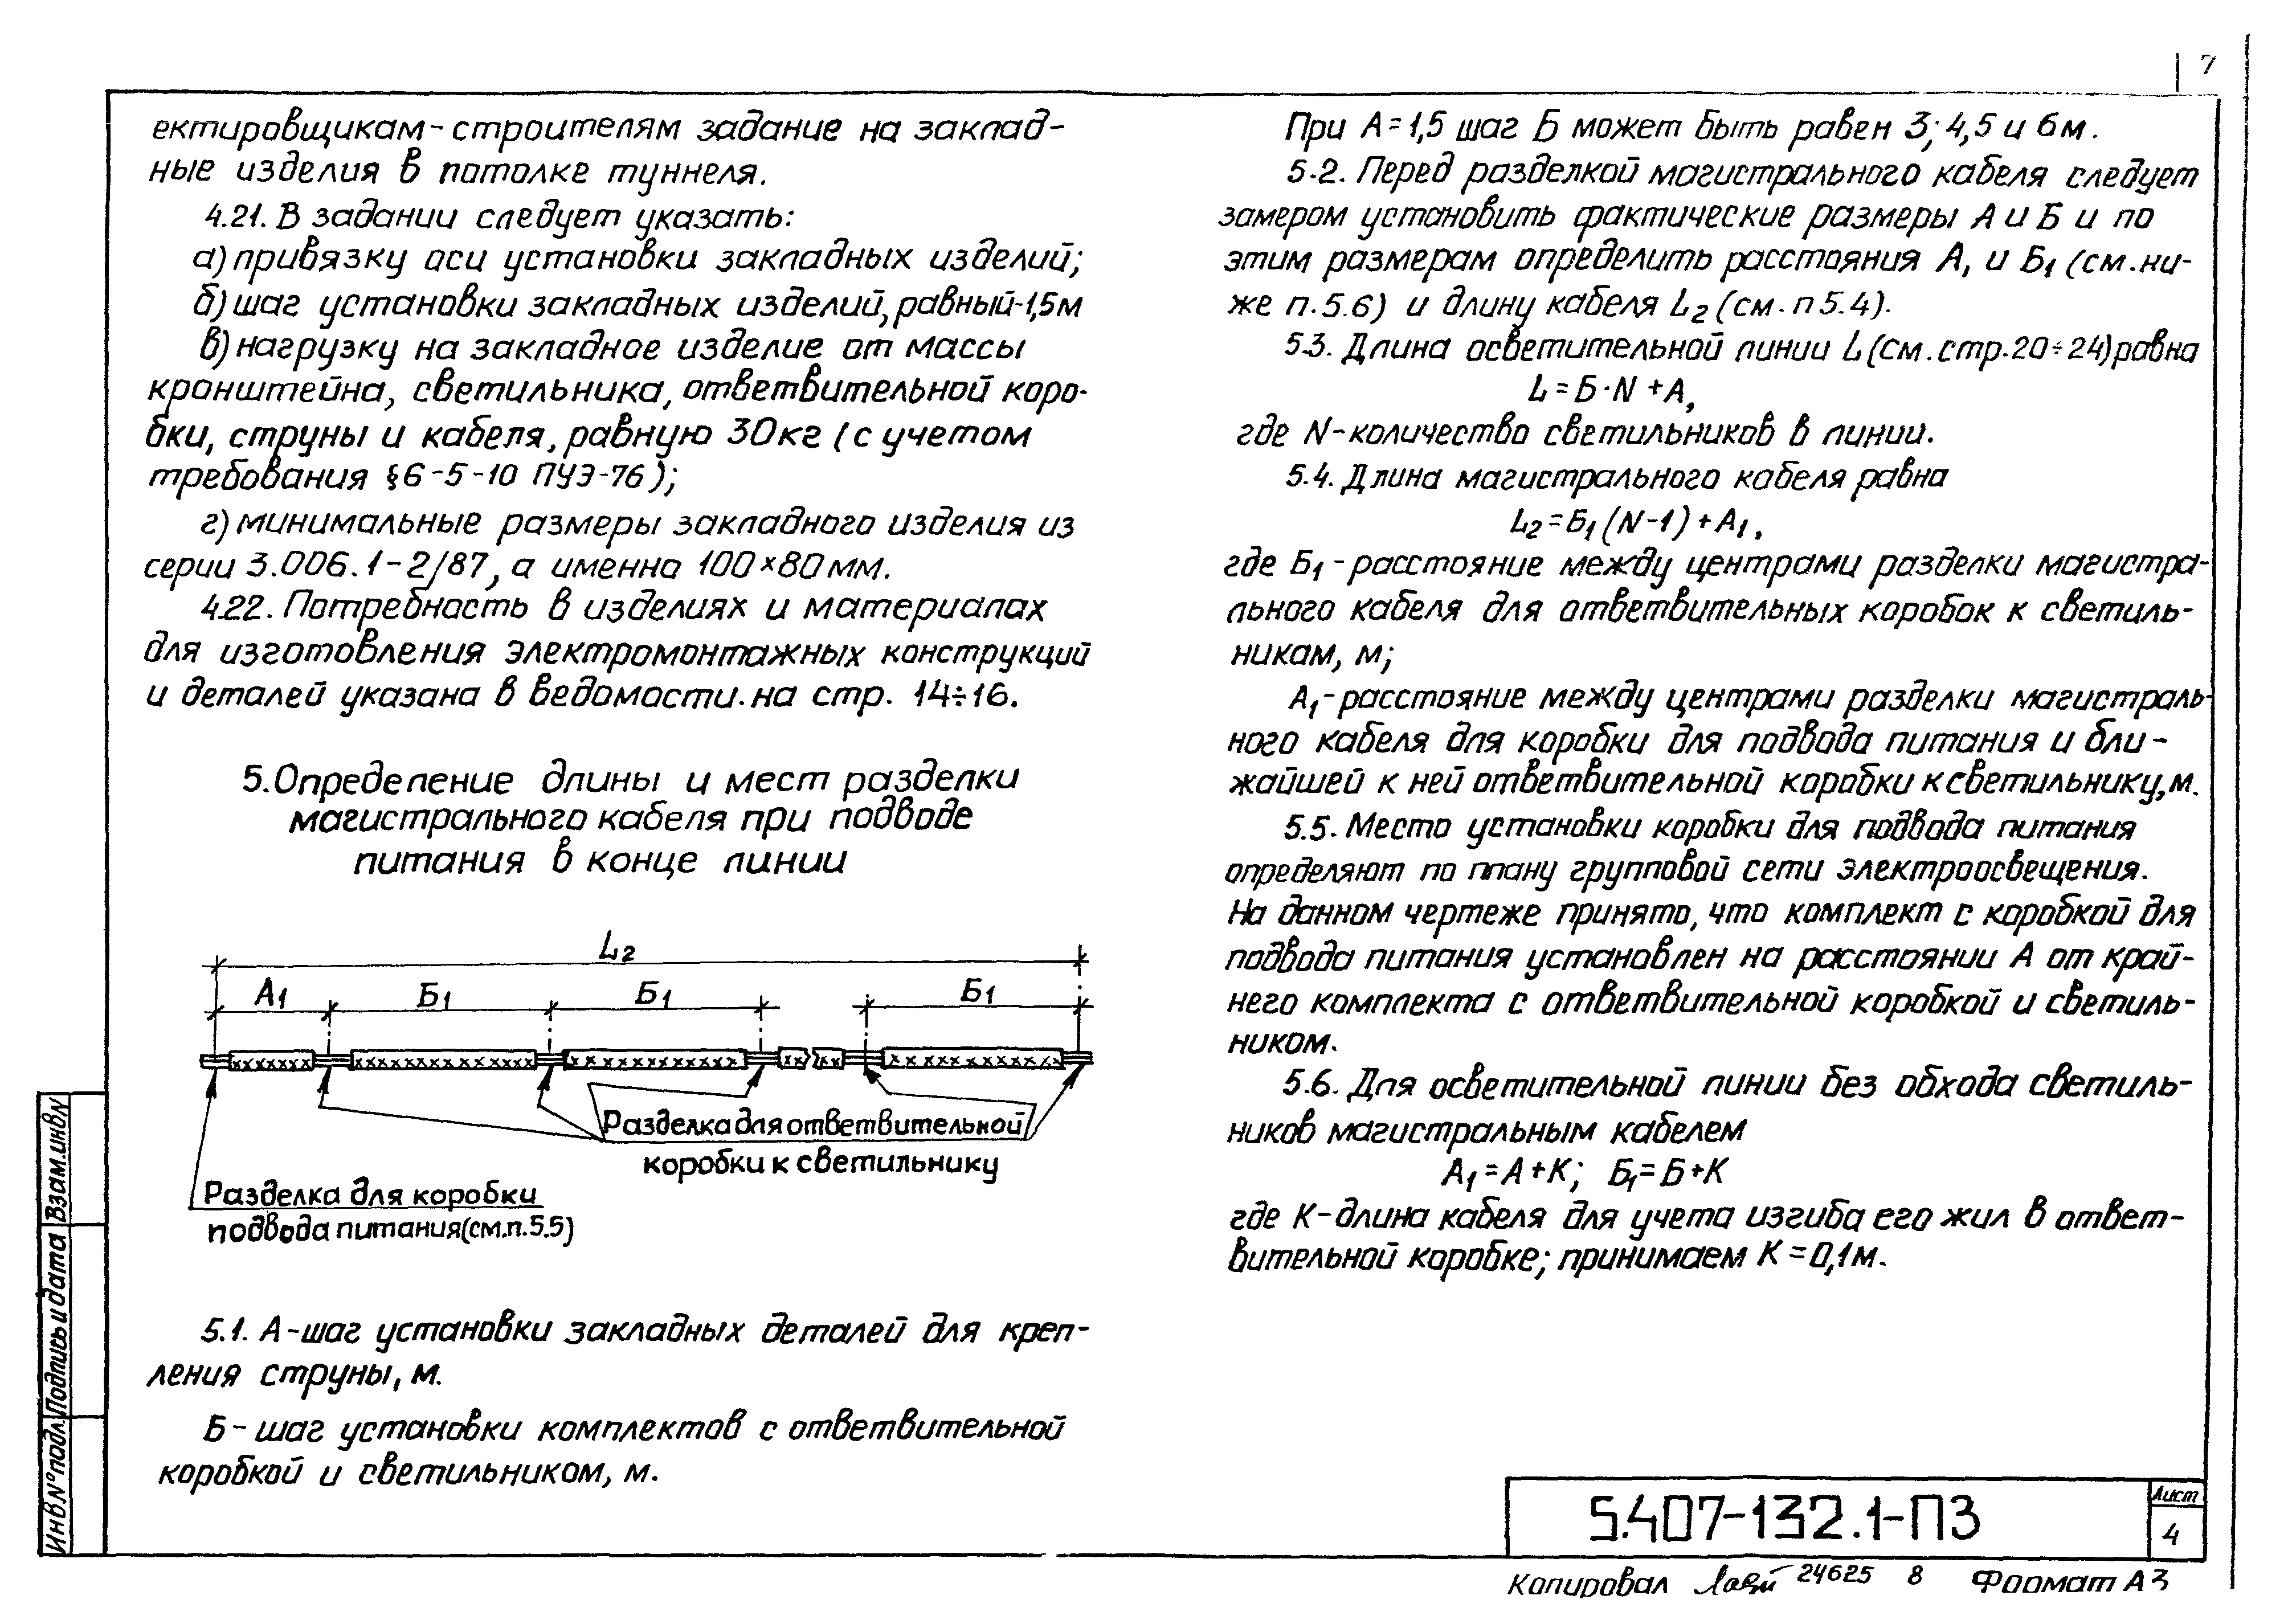 7
ектировщикам-строителям задание на заклад-
ные изделия в потолке туннеля.
4.21. В задании следует указать:
а) привязку оси установки закладных изделий;
б) шаг установки закладных изделий, равный-1,5м
в) нагрузку на закладное изделие от массы
кронштейна, светильника, ответвительной коро-
бки, струны и кабеля, равную 30кг (с учетом
требования §6-5-10 ПУЭ-76);
г) минимальные размеры закладного изделия из
серии 3.006.1-2/87, а именно 100×80мм.
4.22. Потребность в изделиях и материалах
для изготовления электромонтажных конструкций
и деталей указана в ведомости на стр. 14÷16.
5. Определение длины и мест разделки
магистрального кабеля при подводе
питания в конце линии
L2
А1 Б1 Б1 Б1
Разделка для ответвительной
коробки к светильнику
Разделка для коробки
подвода питания(см.п.5.5)
5.1. А-шаг установки закладных деталей для креп-
ления струны, м.
Б-шаг установки комплектов с ответвительной
коробкой и светильником, м.
При А=1,5 шаг Б может быть равен 3; 4,5 и 6м.
5.2. Перед разделкой магистрального кабеля следует
замером установить фактические размеры А и Б и по
этим размерам определить расстояния А1 и Б1 (см.ни-
же п.5.6) и длину кабеля L2 (см.п5.4).
5.3. Длина осветительной линии L (см.стр.20÷24) равна
L=Б·N+А,
где N-количество светильников в линии.
5.4. Длина магистрального кабеля равна
L2=Б1(N-1)+А1,
где Б1-расстояние между центрами разделки магистра-
льного кабеля для ответвительных коробок к светиль-
никам, м;
А1-расстояние между центрами разделки магистраль-
ного кабеля для коробки для подвода питания и бли-
жайшей к ней ответвительной коробки к светильнику, м.
5.5. Место установки коробки для подвода питания
определяют по плану групповой сети электроосвещения.
На данном чертеже принято, что комплект с коробкой для
подвода питания установлен на расстоянии А от край-
него комплекта с ответвительной коробкой и светиль-
ником.
5.6. Для осветительной линии без обхода светиль-
ников магистральным кабелем
А1=А+К; Б1=Б+К
где К-длина кабеля для учета изгиба его жил в ответ-
вительной коробке; принимаем К=0,1м.
Инв.№подл. Подпись и дата Взам.инв№
5.407-132.1-ПЗ
Лист
4
Копировал 24625 8 Формат А3